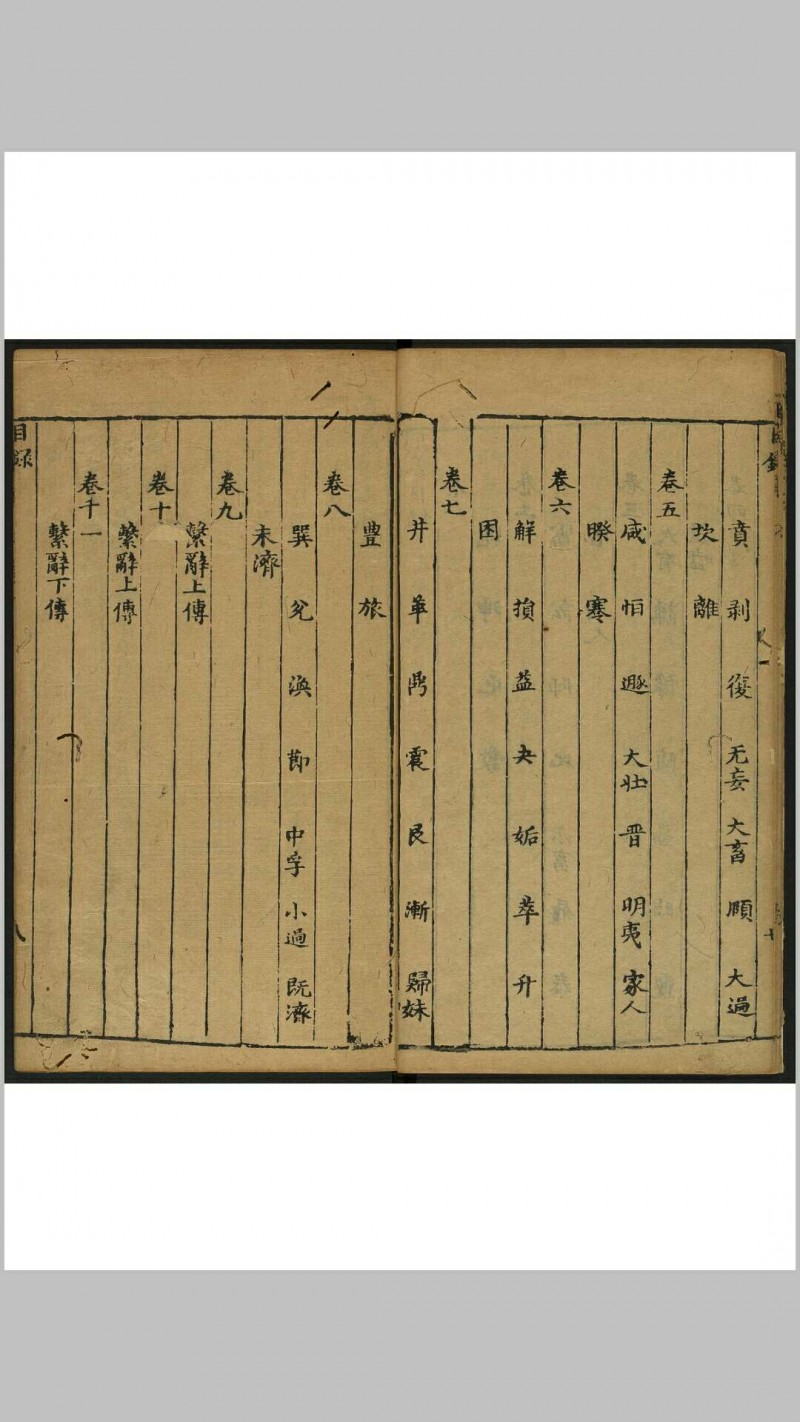 賁 剥 復 无妄 大畜 頤 大過
坎 離
卷五
咸 恒 遯 大壯 晋 明夷 家人
睽 蹇
卷六
解 損 益 夬 姤 萃 升
困
卷七
井 革 鼎 震 艮 漸 歸妹
豐 旅
卷八
巽 兌 渙 節 中孚 小過 既濟
未濟
卷九
繫辭上傳
卷十
繫辭上傳
卷十一
繫辭下傳
目録